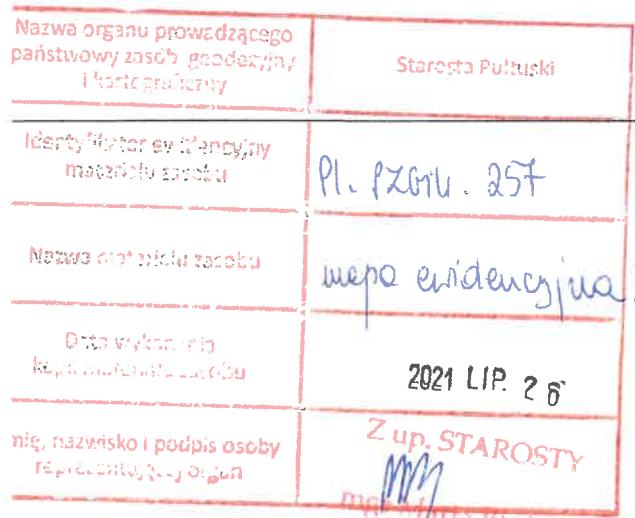 Nazwa organu prowadzącego
państwowy zasób geodezyjny
i kartograficzny
Starosta Pułtuski
Identyfikator ewidencyjny
materiału zasobu
P1. PZGiK. 257
Nazwa materiału zasobu
mapa ewidencyjna.
Data wykonania
kopii materiału zasobu
2021 LIP. 26
mię, nazwisko i podpis osoby
reprezentującej organ
Z up. STAROSTY
mgr